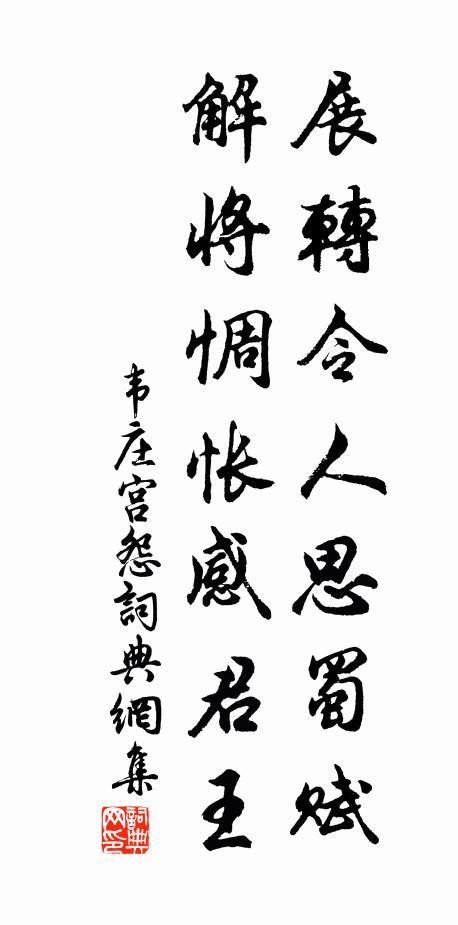 展轉令人思蜀賦
解將惆悵感君王
韦庄宫怨詞典網集
詞典网印